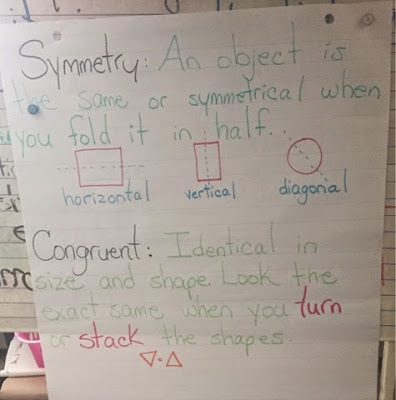 Symmetry: An object is
the same or symmetrical when
you fold it in half.
horizontal vertical diagonal
Congruent: Identical in
size and shape. Look the
exact same when you turn
or stack the shapes.